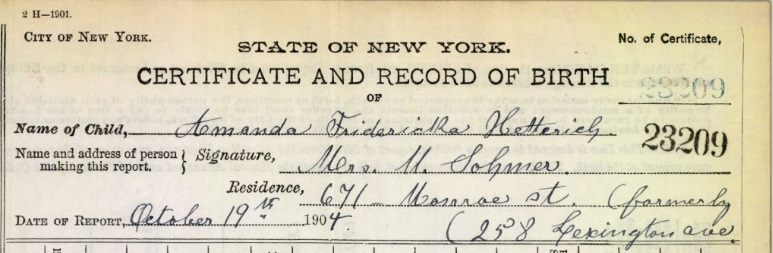 2 H—1901.
CITY OF NEW YORK.
STATE OF NEW YORK.
No. of Certificate,
CERTIFICATE AND RECORD OF BIRTH
23209
OF
Name of Child, Amanda Fridericka Hetterich
23209
Name and address of person making this report. } Signature, Mrs. M. Sohmer.
Residence, 671 Monroe st. (formerly
DATE OF REPORT, October 19th 1904. (258 Lexington ave.